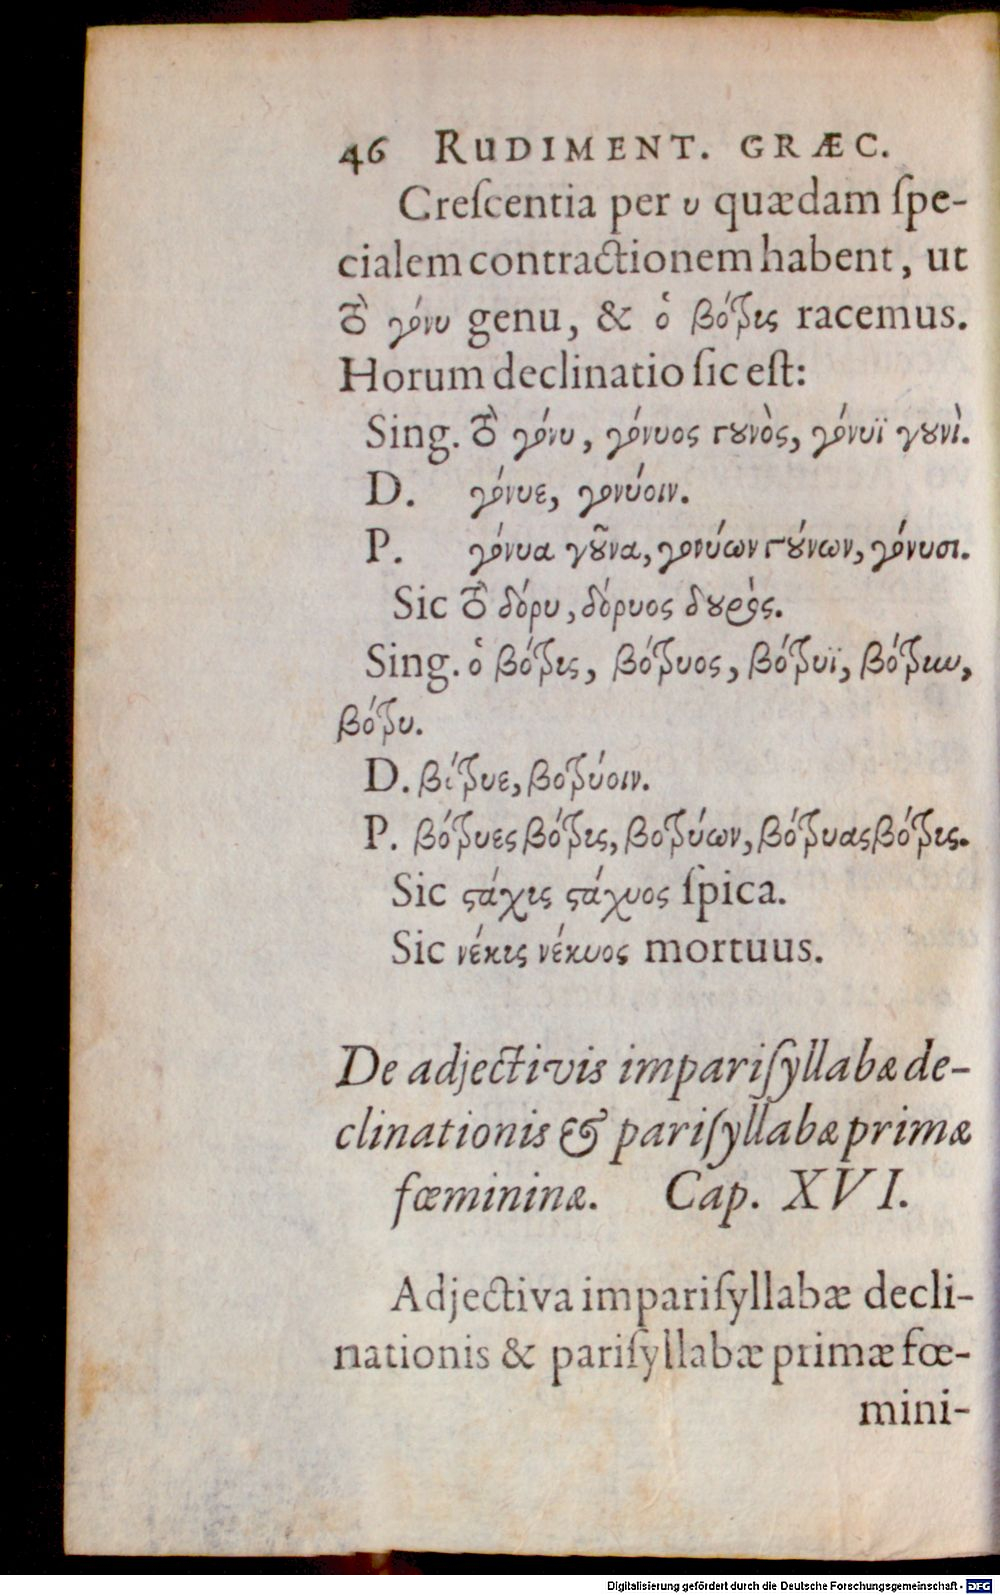 46 RUDIMENT. GRÆC.
Creſcentia per υ quædam ſpe-
cialem contractionem habent, ut
τὸ γόνυ genu, & ὁ βότρυς racemus.
Horum declinatio ſic eſt:
Sing. τὸ γόνυ, γόνυος γουνὸς, γόνυϊ γουνὶ.
D. γόνυε, γονύοιν.
P. γόνυα γοῦνα, γονύων γούνων, γόνυσι.
Sic τὸ δόρυ, δόρυος δουρός.
Sing. ὁ βότρυς, βότρυος, βότρυϊ, βότρυν,
βότρυ.
D. βίτρυε, βοτρύοιν.
P. βότρυες βότρυς, βοτρύων, βότρυας βότρυς.
Sic ϛάχυς ϛάχυος ſpica.
Sic νέκυς νέκυος mortuus.
De adjectivis impariſyllabæ de-
clinationis & pariſyllabæ primæ
fœmininæ. Cap. XVI.
Adjectiva impariſyllabæ decli-
nationis & pariſyllabæ primæ fœ-
mini-
Digitalisierung gefördert durch die Deutsche Forschungsgemeinschaft - DFG